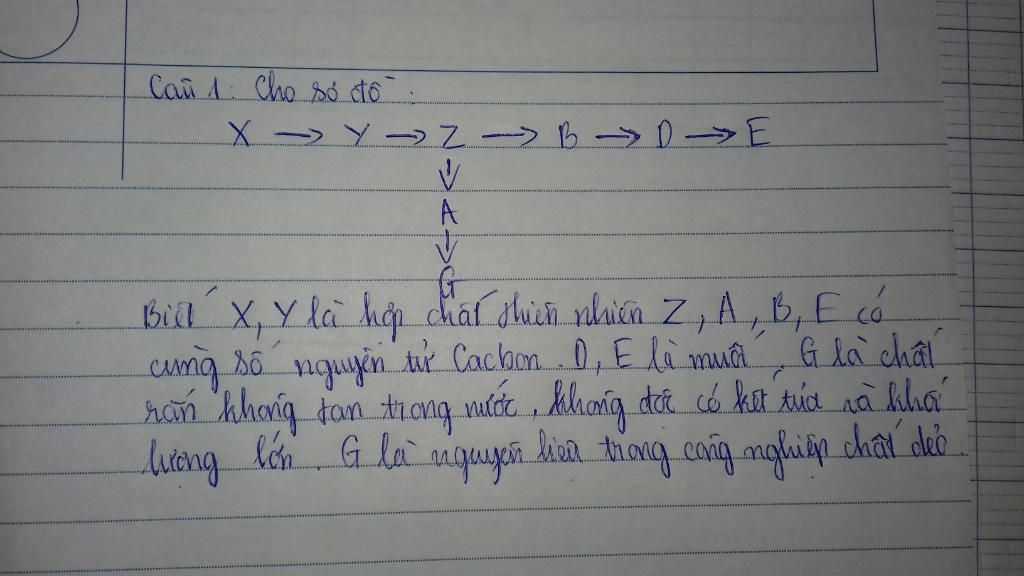 Câu 1: Cho sơ đồ:
X → Y → Z → B → D → E
↓
A
↓
G
Biết X, Y là hợp chất thiên nhiên Z, A, B, E có
cùng số nguyên tử Cacbon. D, E là muối. G là chất
rắn không tan trong nước, không độc có kết tủa và khối
lượng lớn. G là nguyên liệu trong công nghiệp chất dẻo.